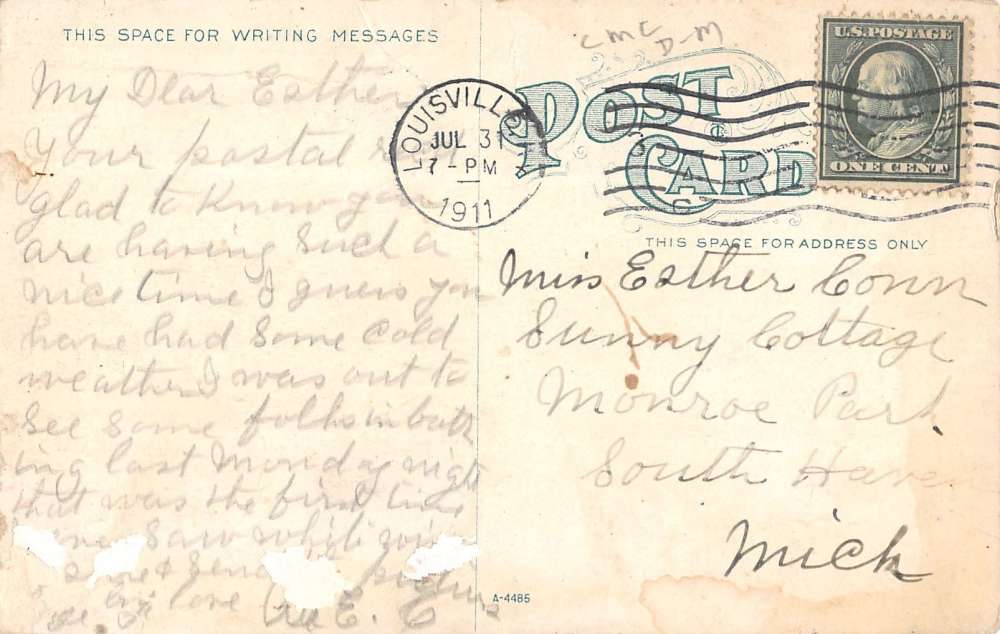 THIS SPACE FOR WRITING MESSAGES
My Dear Esther
Your postal
glad to Know you
are having Such a
nice time I guess you
have had Some Cold
weather I was out to
See Some folks in bath
ing last Monday night
that was the first time
ever Saw white
love E. C
CMC
D-M
POST CARD
LOUISVILLE
JUL 31
7-PM
1911
U.S. POSTAGE
ONE CENT
THIS SPACE FOR ADDRESS ONLY
Miss Esther Conn
Sunny Cottage
Monroe Park
South Haven
Mich
A-4485